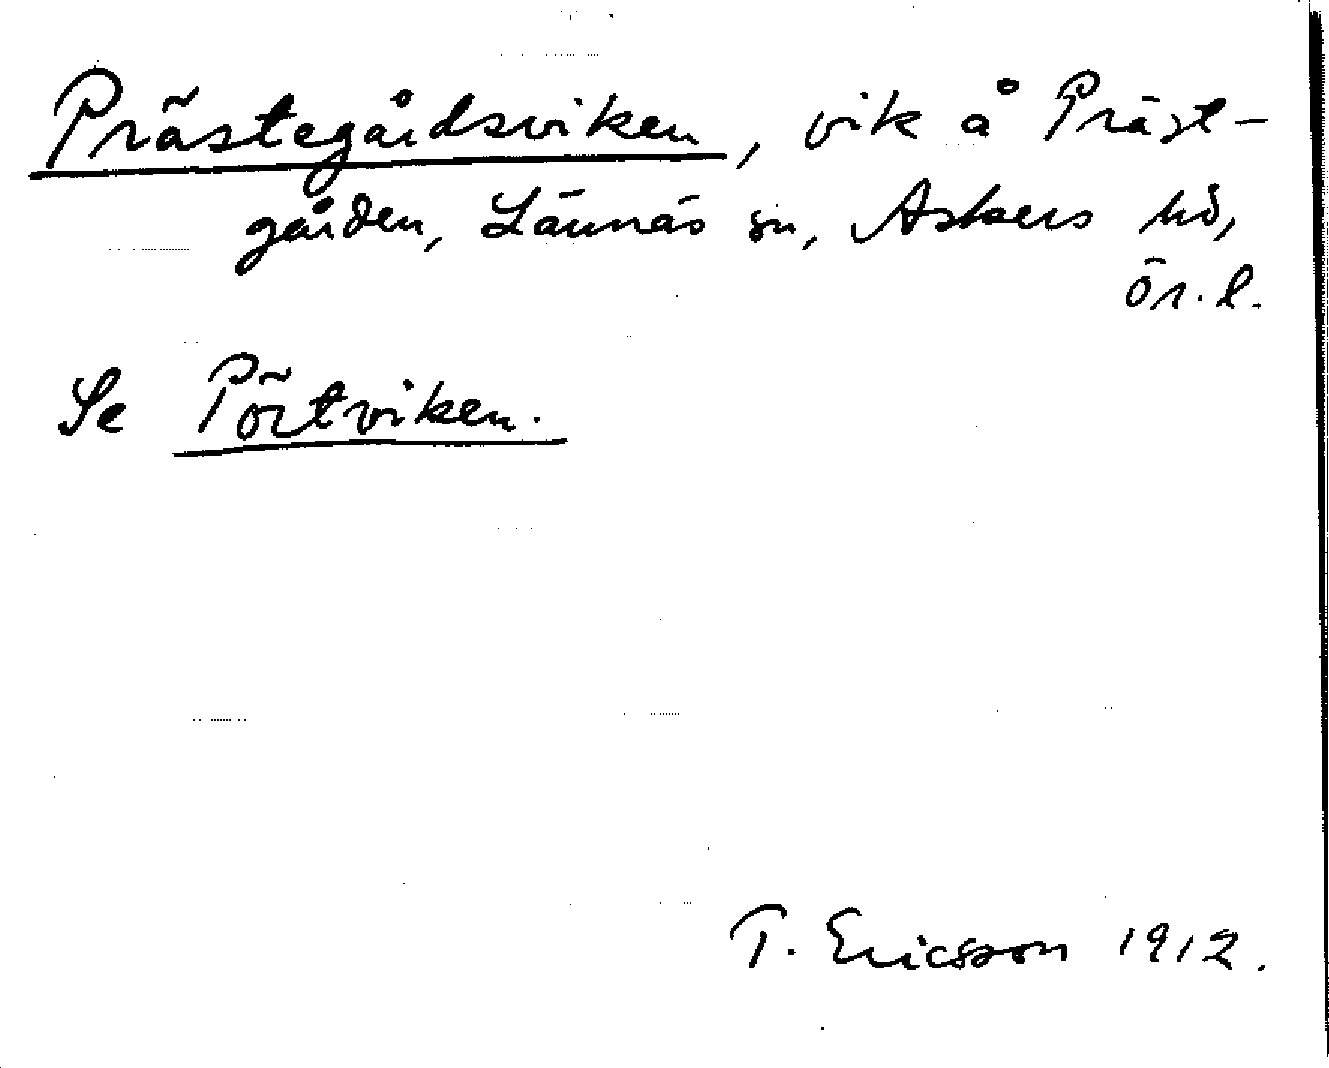 Prästegårdsviken, vik å Präst-
gården, Lännäs sn, Askers hd,
ör. l.
Se Pörtviken.
T. Ericsson 1912.